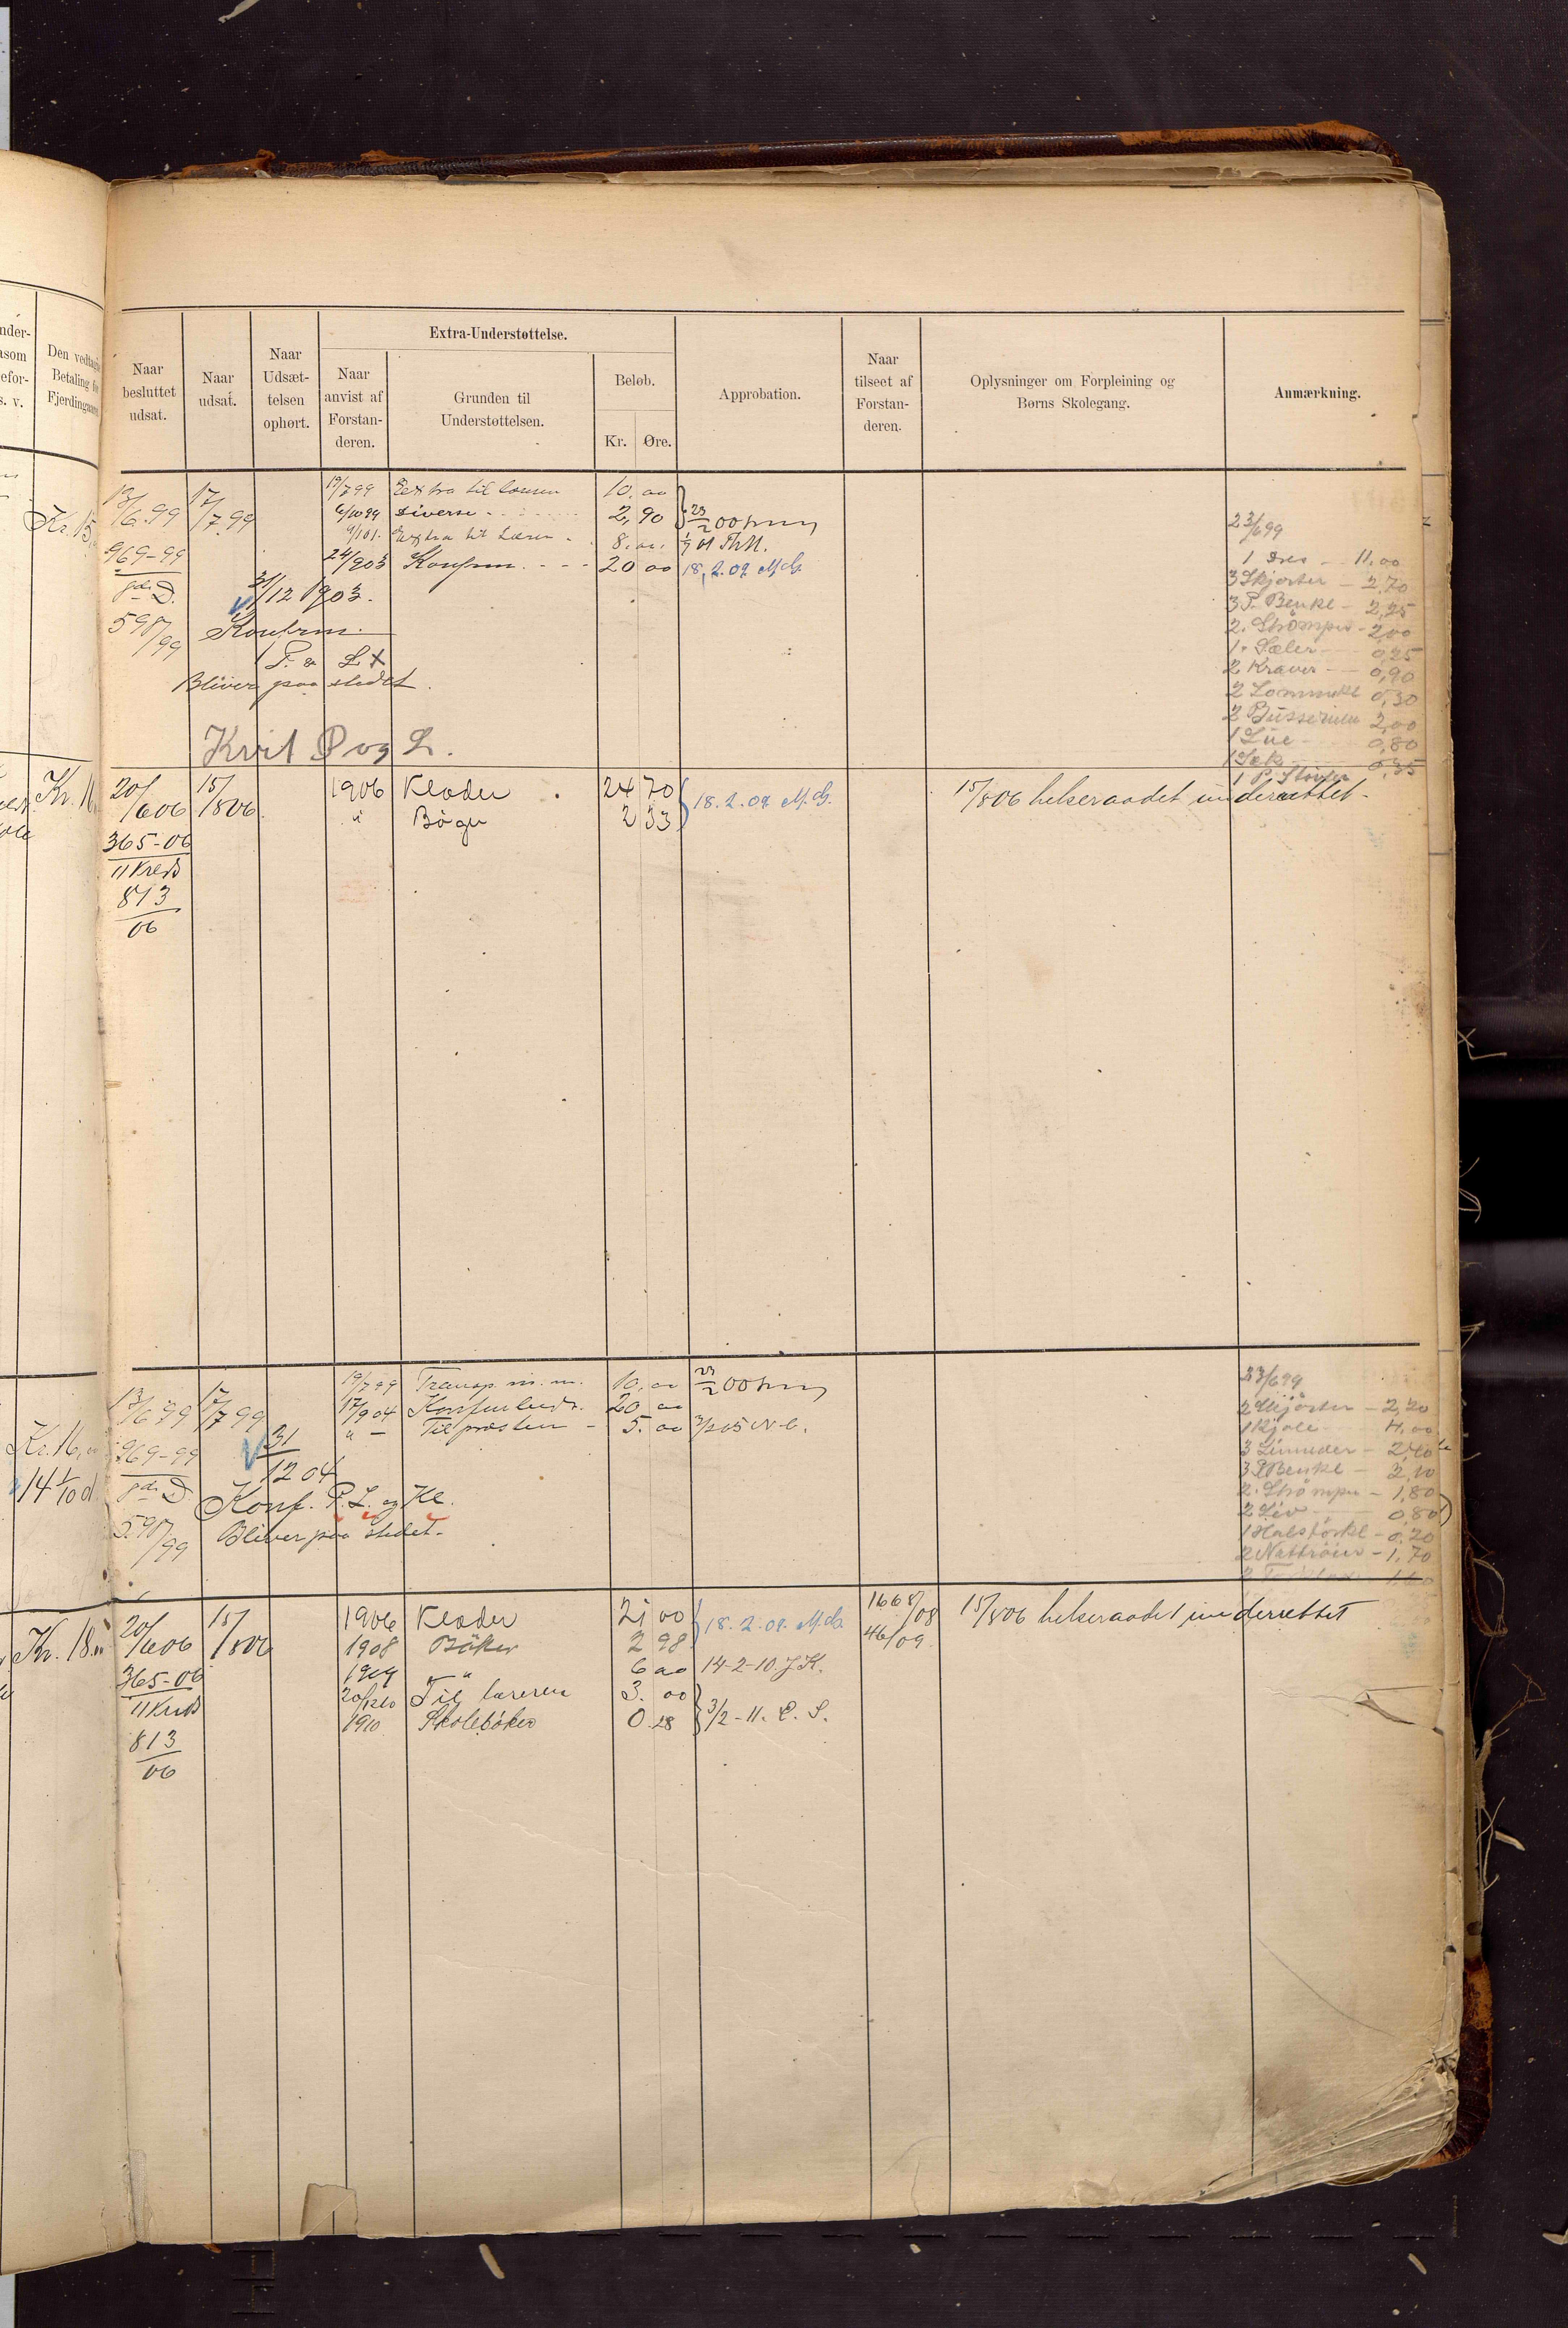 Den vedtagne
Betaling for
Fjerdingaaret
Naar
besluttet
udsat.
Naar
udsat.
Naar
Udsæt-
telsen
ophørt.
Extra-Understøttelse.
Naar
anvist af
Forstan-
deren.
Grunden til
Understøttelsen.
Beløb.
Kr. Øre.
Approbation.
Naar
tilseet af
Forstan-
deren.
Oplysninger om Forpleining og
Børns Skolegang.
Anmærkning.
Kr. 15,
13/6.99 17/7.99 19/7 99 Extra til 10.00
6/10 99 Diverse 2,90 23/2 00
9/1 01. Extra til Læren 8.00. 01
969-99 24/9 03 Konfirm. 20 00 18.2.07 M.G.
31/12 1903.
598/99 Konfirm.
P. & L X
Bliver paa stedet.
Kvit P og L.
23/6 99
1 Dres 11.00
3 Skjorter - 2,70
3 P. Benkl - 2,25
2. Strømper - 2,00
1. Sæler 0,25
2 Kraver 0,90
2 Lommekl 0,30
2 Busseruller 2,00
1 Lue 0,80
1 Sæk 0,35
1 P. Støvler
Kr. 16
20/6 06 15/8 06 1906 Klæder 24 70 18.2.07 M.G. 15/8 06 helseraadet underrettet.
" Bøger 2 33
365-06
11 Kreds
813
06
Kr. 16,
14 1/10 d
13/6 99 17/7 99 19/7 99 Transp. m. m. 10.00 23/2 00
17/9 04 20 00
" - Til præsten - 5.00 3/2 05 N.C.
969-99 31
12 04
Konf. P. L. og Kl.
598/99 Bliver paa stedet.
23/6 99
2 Skjorter - 2,20
1 Kjole 4,00
3 Linneder - 2,40
3 P Benkl - 2,10
2. Strømper - 1,80
2 Liv 0,80
1 Halstørkl - 0,20
2 Nattrøier - 1,70
1,60
Kr. 18.
20/6 06 15/8 06 1906 Klæder 21 00 18.2.07. M.G. 1668/08 15/8 06 helseraadet underrettet
1908 Bøker 2 98 46/09
365-06 1909 " " 6 00 14-2-10. J.K.
11 Kreds 20/12 10 Til læreren 3.00
1910 Skolebøker 0.28 3/2-11. C. S.
813
06